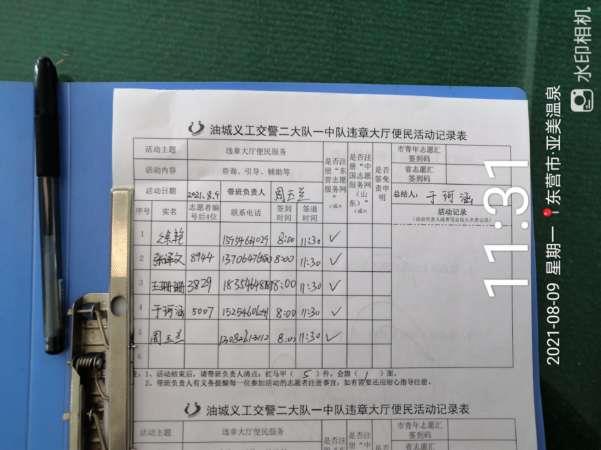 油城义工交警二大队一中队违章大厅便民活动记录表
活动主题 违章大厅便民服务 是否注册"东营志愿服务网" 是否注册"中国志愿服务网(山东)" 是否签免责申明 市青年志愿汇签到码
活动内容 咨询、引导、辅助等 省志愿汇签到码
活动日期 2021.8.9 带班负责人 周玉兰 总结人: 于珂涵
序号 实名 志愿者编号后4位 联系电话 签到时间 签退时间 活动记录
1 徐艳 8:00 11:30 ✓
2 8944 8:00 11:30 ✓
3 王珊珊 3829 8:00 11:30 ✓
4 于珂涵 5007 8:00 11:30 ✓
5 周玉兰 8:00 11:30 ✓
6
注: 1、活动结束后,请带班负责人清点:红马甲(5)件,会旗(1)面。
2、带班负责人有义务提醒每一位参加活动的志愿者注册事宜,如有需要还应耐心指导注册。
油城义工交警二大队一中队违章大厅便民活动记录表
活动主题 违章大厅便民服务 市青年志愿汇签到码
活动内容 咨询、引导、辅助等 省志愿汇
11:31
2021-08-09 星期一 东营市·亚美温泉
水印相机